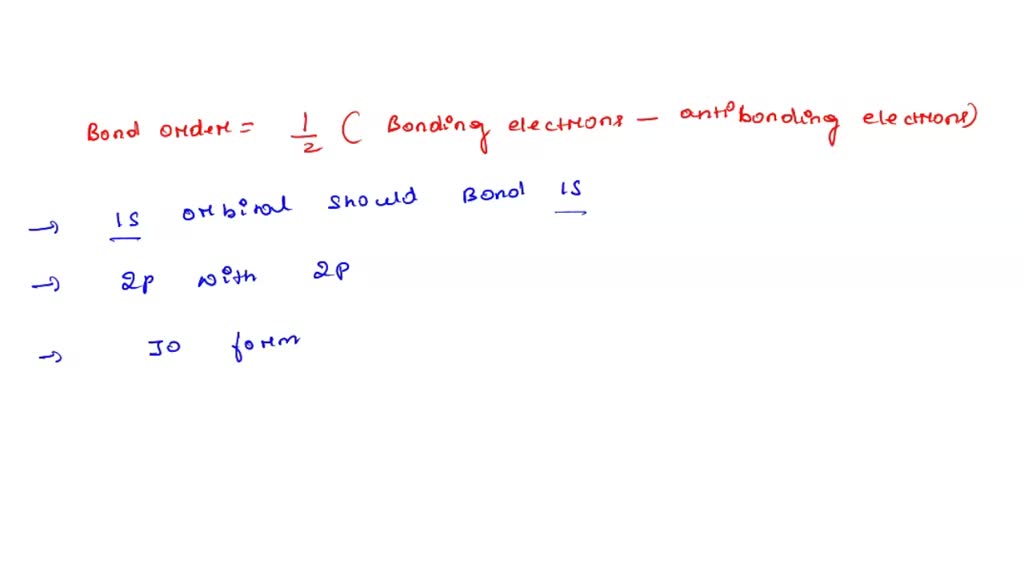 Bond order = 1/2 ( Bonding electrons - antibonding electrons)
→ 1S orbital should Bond 1S
→ 2p with 2p
→ To form